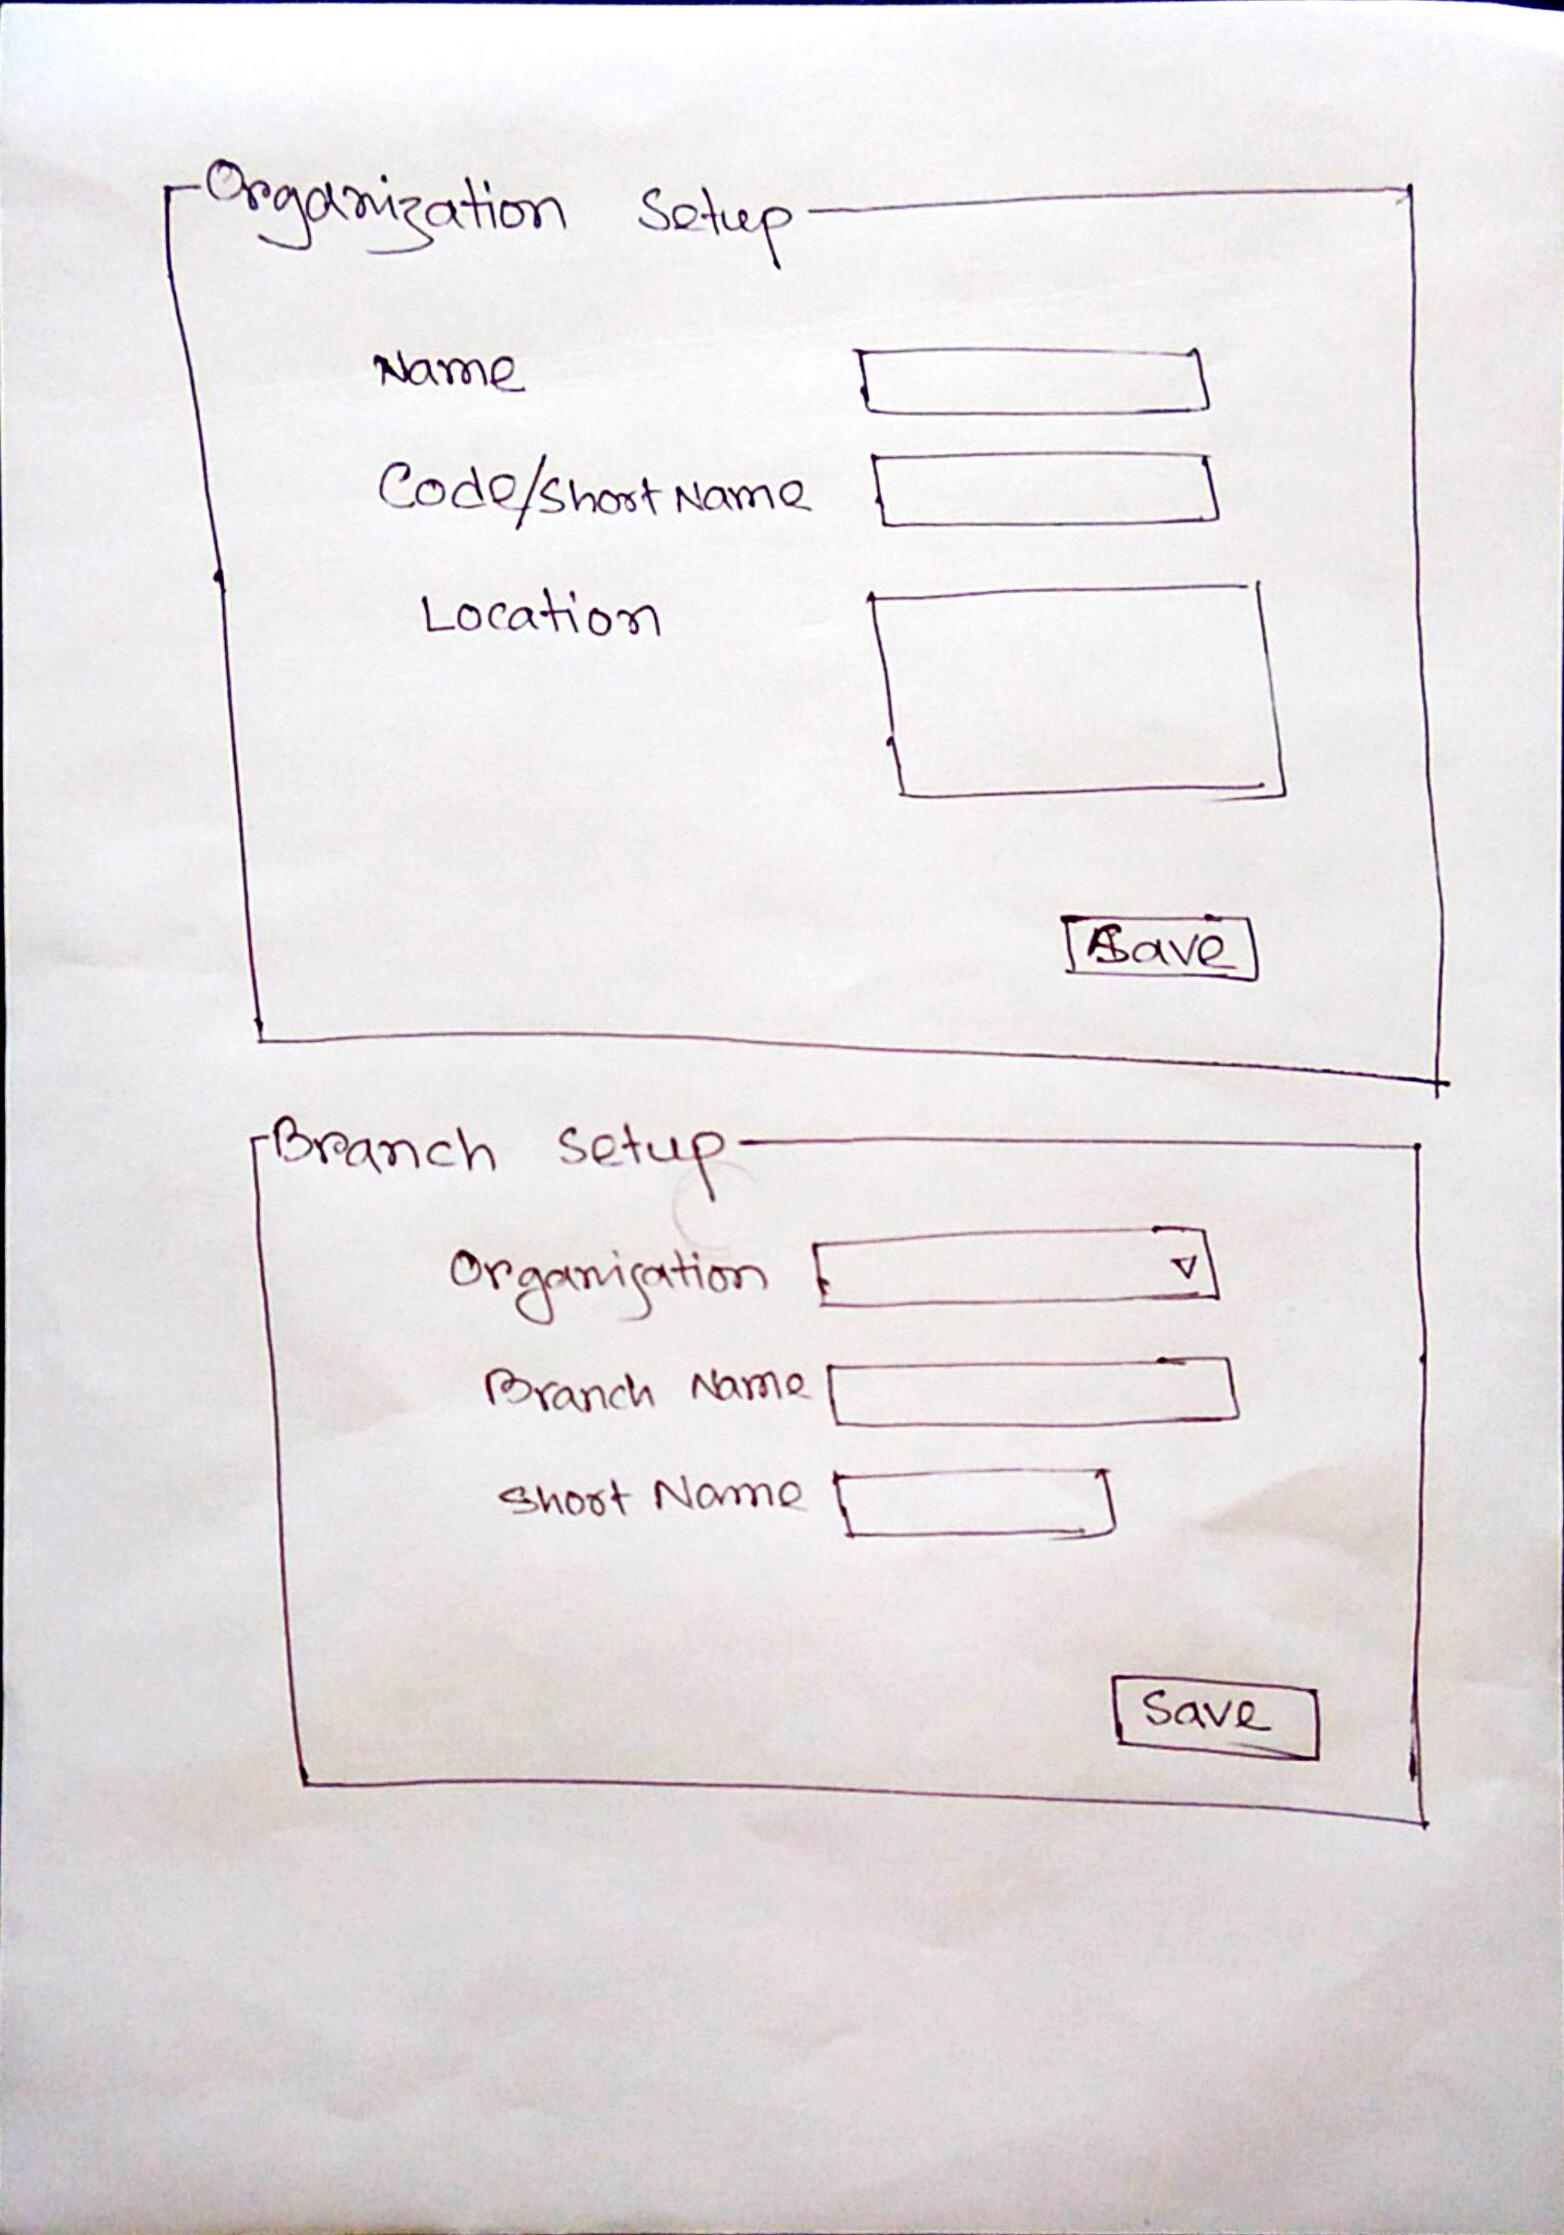 Organization Setup
Name
Code/Short Name
Location
Save
Branch Setup
Organization
Branch Name
Short Name
Save